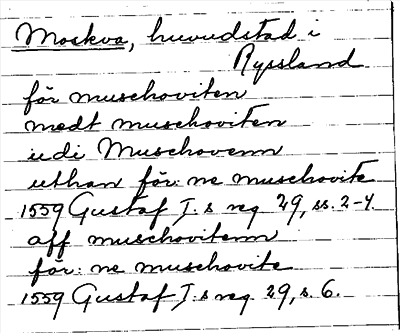 Moskva, huvudstad i
Ryssland
för muschoviten
medt muschoviten
udi Muschovenn
uthan för: ne muschovite
1559 Gustaf I:s reg 29, ss. 2-4.
aff muschovitenn
för: ne muschovite
1559 Gustaf I:s reg. 29, s. 6.